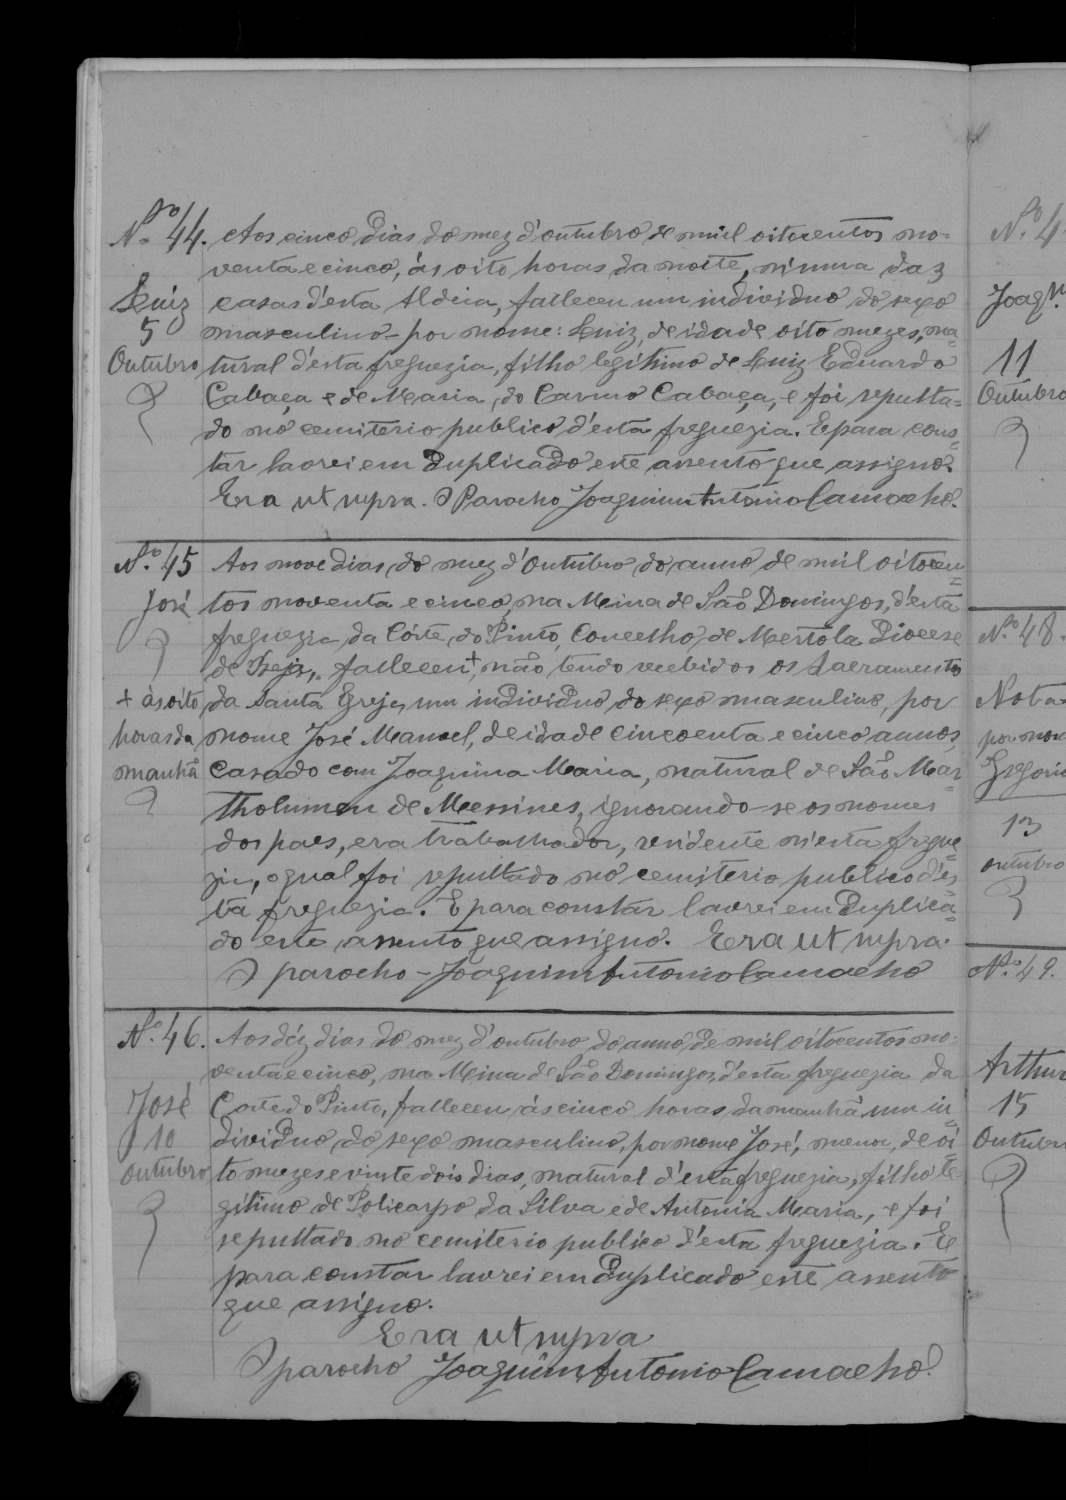 Nº 44.
Luiz
5
Outubro
Aos cinco dias do mez d'outubro de mil oitocentos no=
venta e cinco, ás oito horas da noite, n'uma das
casas d'esta Aldeia, falleceu um individuo do sexo
masculino - por nome: Luiz, de idade oito mezes, na=
tural d'esta freguezia, filho legitimo de Luiz Eduardo
Cabaça e de Maria do Carmo Cabaça, e foi sepulta=
do no cemiterio publico d'esta freguezia. E para cons=
tar lavrei em duplicado este assento que assigno.
Era ut supra. O Parocho Joaquim Antonio Camacho.
Nº 45
José
+ ás oito
horas da
manhã
Aos nove dias do mez d'Outubro do anno de mil oitocen=
tos noventa e cinco, na Meina de São Domingos, d'esta
freguezia da Côrte do Pinto, Concelho de Mertola Diocese
de Beja, falleceu +, não tendo recebidos os Sacramento
da Santa Egreja, um individuo do sexo masculino, por
nome José Manoel, de idade cincoenta e cinco annos,
casado com Joaquina Maria, natural de São Bar=
tholumeu de Messines, ignorando-se os nomes
dos paes, era trabalhador, residente n'esta fregue=
zia, o qual foi sepultado no cemiterio publico d'es=
ta freguezia. E para constar lavrei em Duplica=
do este assento que assigno. Era ut supra.
O parocho - Joaquim Antonio Camacho
Nº 46.
José
10
outubro
Aos déz dias do mez d'outubro do anno de mil oitocentos no=
venta e cinco, na Meina de São Domingos, d'esta freguezia da
Corte do Pinto, falleceu ás cinco horas da manhã um in=
dividuo do sexo masculino, por nome José, menor, de oi=
to mezes e vinte dois dias, natural d'esta freguezia, filho le=
gitimo de Policarpo da Silva e de Antonia Maria, e foi
sepultado no cemiterio publico d'esta freguezia. E
para constar lavrei em Duplicado este assento
que assigno.
Era ut supra
O parocho Joaquim Antonio Camacho.
Nº 4
Joaqm
11
Outubro
Nº 48.
Nota
por nome
Gregorio
13
outubro
Nº 49.
Arthur
15
Outubro